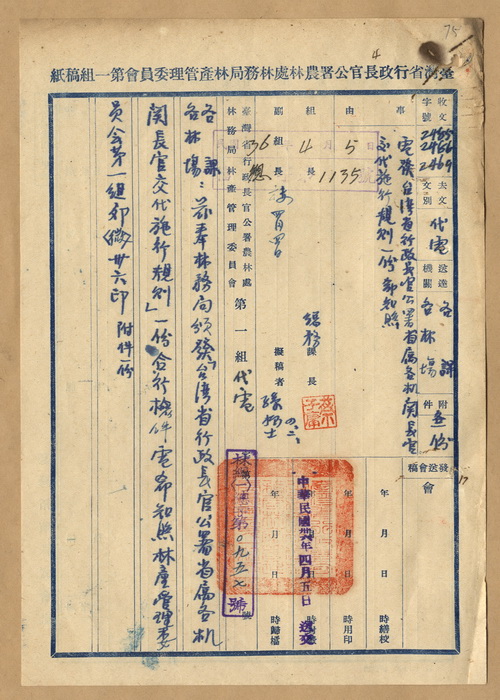 臺灣省行政長官公署農林處林務局林產管理委員會第一組稿紙
75
4
收文
字號
2465
2466
2469
去文
文別
代電
送達
機關
各課
林場
附件
壹份
發送會稿
會
事
由
電發台灣省行政長官公署省屬各机関長官
交代施行規則一份希知照
36
4
5
1135
組長
副組長
總務課長
擬稿者
年 月 日 時繕校
年 月 日 時用印
中華民國卅六年四月五日 送交
年 月 日 時歸檔
林
第〇九五七號
臺灣省行政長官公署農林處
林務局林產管理委員會
第一組代電
各課
各林場：茲奉林務局頒發「台湾省行政長官公署省属各机
関長官交代施行規則」一份合行檢件電希知照林產管理委
員会第一組卯 卅六印 附件一份